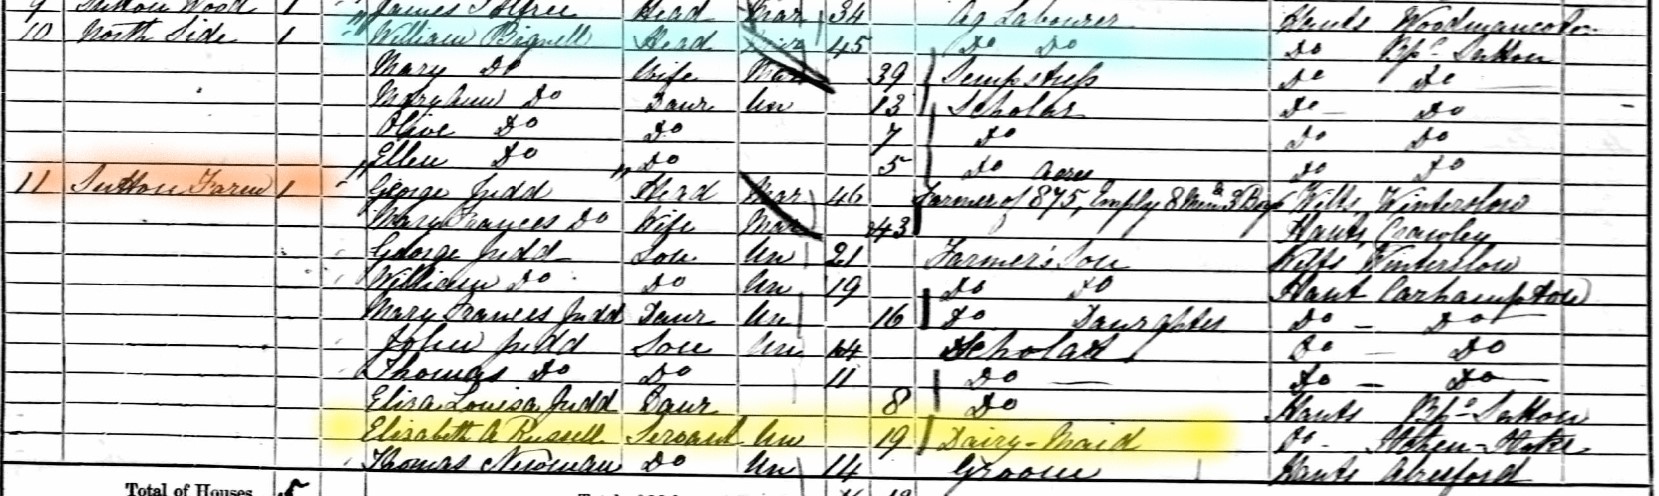 9 Sutton Wood 1 James Head Mar 34 Ag Labourer Hants Woodmancoton
10 North Side 1 William Bignell Head Mar 45 Do Do Do Bps Sutton
Mary Do Wife Mar 39 Sempstress Do Do
Mary Ann Do Daur Un 13 Scholar Do - Do
Olive Do Do 7 Do Do Do
Ellen Do Do 5 Do Do Do
11 Sutton Farm 1 George Judd Head Mar 46 Farmer of 875 Acres, Employ 8 Men 3 Boys Wilts, Winterslow
Mary Frances Do Wife Mar 43 Hants, Crawley
George Judd Son Un 21 Farmer's Son Wilts Winterslow
William Do Do Un 19 Do Do Hant Corhampton
Mary Frances Judd Daur Un 16 Do Daughter Do - Do
John Judd Son Un 14 Scholar Do - Do
Thomas Do Do 11 Do Do - Do
Eliza Louisa Judd Daur 8 Do Hants Bps Sutton
Elizabeth A Russell Servant Un 19 Dairy-Maid Do - Itchen-Stoke
Thomas Newman Do Un 14 Groom Hants Alresford
Total of Houses 5